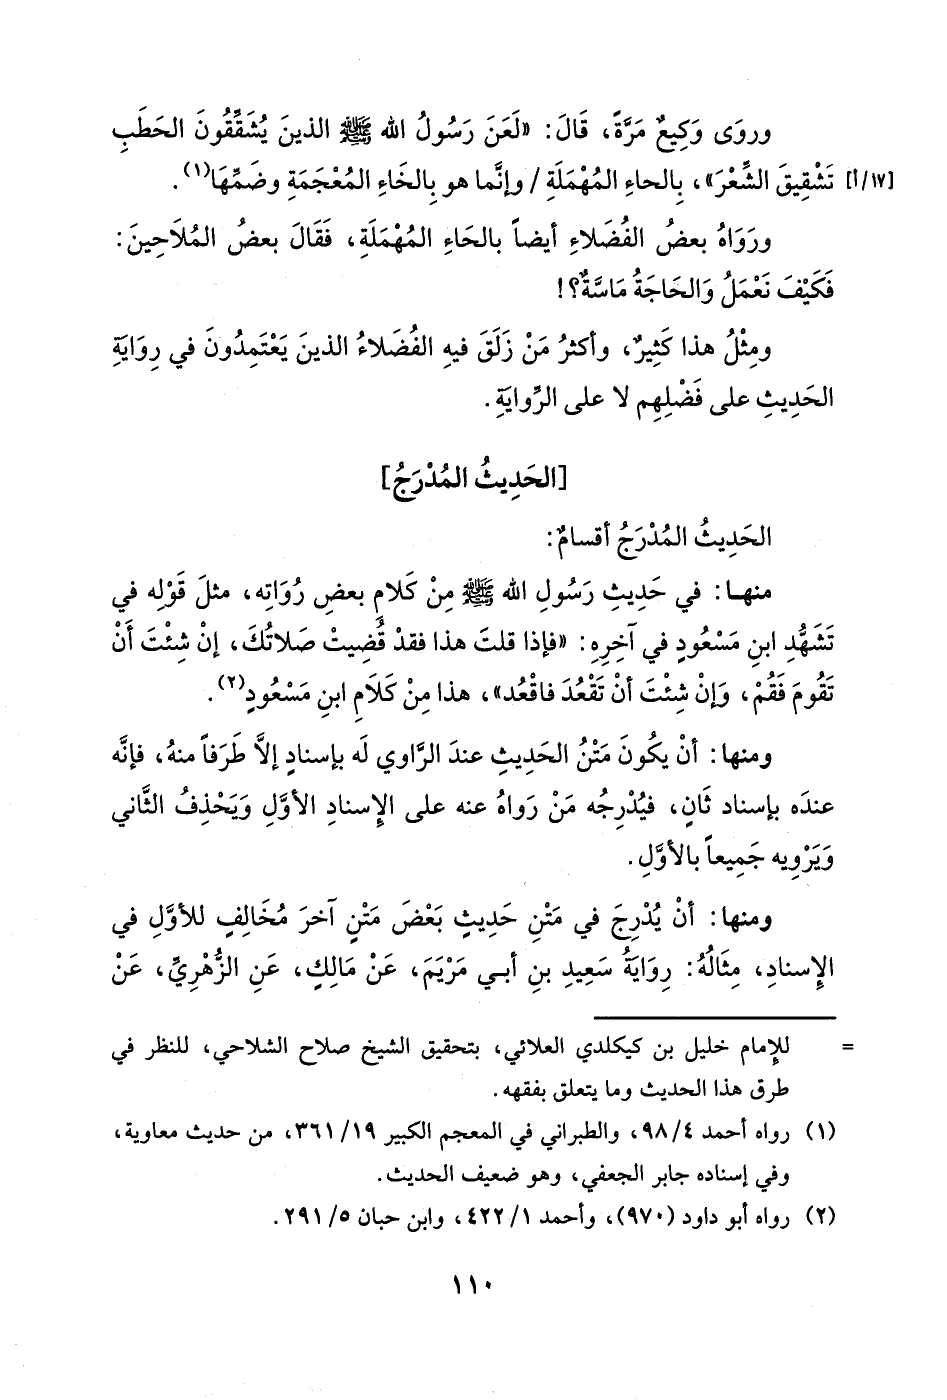 وروَى وَكِيعٌ مَرَّةً، قَالَ: «لَعَنَ رَسُولُ الله ﷺ الذينَ يُشَقِّقُونَ الحَطَبِ
[١٧/أ] تَشْقِيقَ الشِّعْرَ»، بِالحاءِ المُهْمَلَةِ / وإنَّما هو بِالخَاءِ المُعْجَمَةِ وضَمِّهَا(١).
ورَوَاهُ بعضُ الفُضَلاءِ أيضاً بالحَاءِ المُهْمَلَةِ، فَقَالَ بعضُ المُلَاحِينَ:
فَكَيْفَ نَعْمَلُ وَالحَاجَةُ مَاسَّةٌ؟!
ومِثْلُ هذا كَثِيرٌ، وأكثرُ مَنْ زَلَقَ فيهِ الفُضَلاءُ الذينَ يَعْتَمِدُونَ في رِوَايَةِ
الحَدِيثِ على فَضْلِهِم لا على الرِّوايَةِ.
[الحَدِيثُ المُدْرَجُ]
الحَدِيثُ المُدْرَجُ أقسامٌ:
منهـا: في حَدِيثِ رَسُولِ الله ﷺ مِنْ كَلامِ بعضِ رُوَاتِه، مثلَ قَوْلِه في
تَشَهُّدِ ابنِ مَسْعُودٍ في آخِرِهِ: «فإذا قلتَ هذا فقدْ قُضِيتْ صَلاتُكَ، إنْ شِئْتَ أَنْ
تَقُومَ فَقُمْ، وَإنْ شِئْتَ أنْ تَقْعُدَ فاقْعُد»، هذا مِنْ كَلَامِ ابنِ مَسْعُودٍ(٢).
ومنها: أنْ يكُونَ مَتْنُ الحَدِيثِ عندَ الرَّاوي لَه بإسنادٍ إلاَّ طَرَفاً منهُ، فإنَّه
عندَه بإسناد ثَانٍ، فيُدْرِجُه مَنْ رَواهُ عنه على الإسنادِ الأوَّلِ وَيَحْذِفُ الثَّاني
وَيَرْوِيه جَمِيعاً بالأوَّلِ.
ومنها: أنْ يُدْرِجَ في مَتْنِ حَدِيثٍ بَعْضَ مَتْنٍ آخرَ مُخَالِفٍ للأوَّلِ في
الإسنادِ، مِثَالُهُ: رِوَايَةُ سَعِيدِ بنِ أبـي مَرْيَمَ، عَنْ مَالِكٍ، عَنِ الزُّهْرِيِّ، عَنْ
= للإمام خليل بن كيكلدي العلائي، بتحقيق الشيخ صلاح الشلاحي، للنظر في
طرق هذا الحديث وما يتعلق بفقهه.
(١) رواه أحمد ٤/ ٩٨، والطبراني في المعجم الكبير ١٩/ ٣٦١، من حديث معاوية،
وفي إسناده جابر الجعفي، وهو ضعيف الحديث.
(٢) رواه أبو داود (٩٧٠)، وأحمد ١/ ٤٢٢، وابن حبان ٥/ ٢٩١.
١١٠